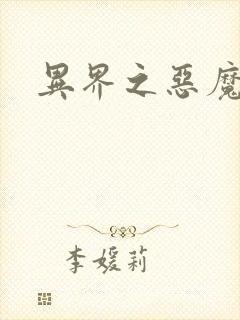 異界之惡魔
李媛莉